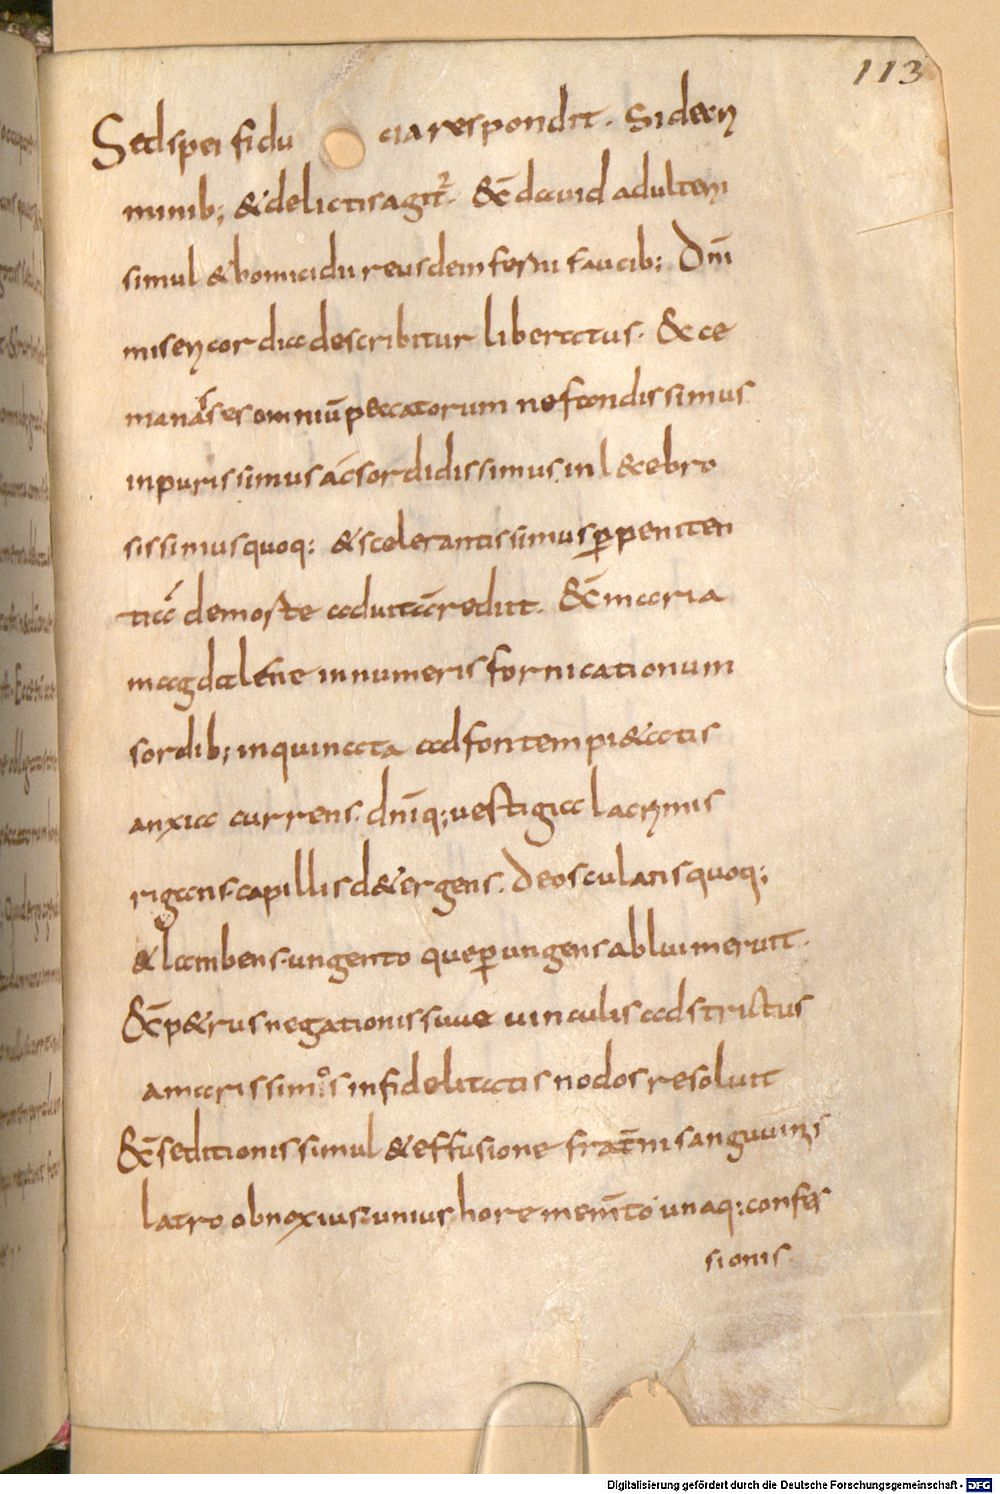 113
Sed spei fidu cia respondit. Si de cri
minib; & delictis agit᷑. &̄ dauid adulterii
simul & homicidii reus dem ferali faucib; Dn̄i
misericordia describitur liberatus. & ce
manases omniū peccatorum nefandissimus
inpurissimus ac sordidissimus in l&ebro
sissimusquoq; & scelerantissimus ꝑ peniten
tiā demoste aduitā rediit. &̄ maria
magdalene innumeris fornicationum
sordib; inquinata ad fontem pi&atis
anxia currens. dn̄iq; uestigia lacrimis
rigans capillis d&ergens. Deosculatis quoq;
& lambens. ungento que ꝑungens ablui meruit.
&̄ p&rus negationis suue uinculis adstrictus
amarissimos infidelitatis nodos resoluit
&̄ seditionis simul & effusione frat̄ni sanguuinis
latro obnoxius unius hore mem̄to unaq; confes
sionis
Digitalisierung gefördert durch die Deutsche Forschungsgemeinschaft - DFG